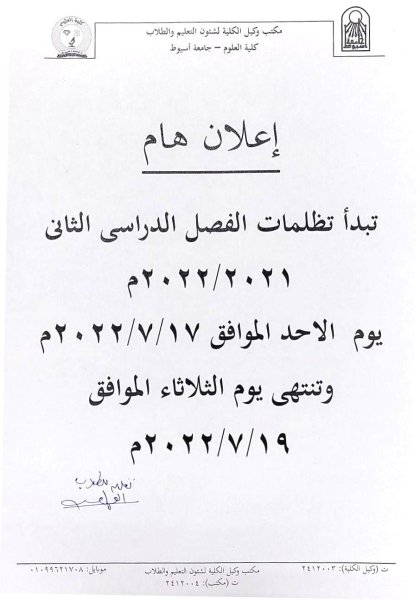 مكتب وكيل الكلية لشئون التعليم والطلاب
كلية العلوم – جامعة أسيوط
إعلان هام
تبدأ تظلمات الفصل الدراسى الثانى
٢٠٢٢/٢٠٢١م
يوم الاحد الموافق ٢٠٢٢/٧/١٧م
وتنتهى يوم الثلاثاء الموافق
٢٠٢٢/٧/١٩م
ت (وكيل الكلية): ٢٤١٢٠٠٣
مكتب وكيل الكلية لشئون التعليم والطلاب
ت (مكتب): ٢٤١٢٠٠٤
موبايل: ٠١٠٩٩٦٢١٧٠٨